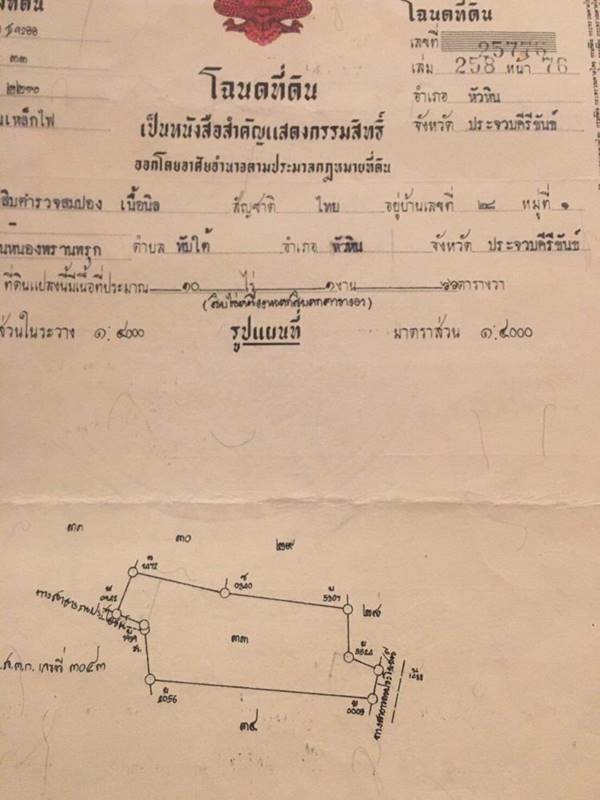 โฉนดที่ดิน
เลขที่ 25776
เล่ม 258 หน้า 76
อำเภอ หัวหิน
จังหวัด ประจวบคีรีขันธ์
๓๓
๒๒๑๐
โฉนดที่ดิน
เป็นหนังสือสำคัญแสดงกรรมสิทธิ์
ออกโดยอาศัยอำนาจตามประมวลกฎหมายที่ดิน
สิบตำรวจสมปอง เนื้อนิล สัญชาติ ไทย อยู่บ้านเลขที่ ๒๘ หมู่ที่ ๑
หนองพรานพรุก ตำบล ทับใต้ อำเภอ หัวหิน จังหวัด ประจวบคีรีขันธ์
ที่ดินแปลงนี้มีเนื้อที่ประมาณ ๑๐ ไร่ ๑ งาน ๖๖ ตารางวา
ส่วนในระวาง ๑:๔๐๐๐ รูปแผนที่ มาตราส่วน ๑:๔๐๐๐
๓๑ ๓๐ ๒๙
๒๗
๓๓
ส.ต.ก. เลขที่ ๓๐๔๓
๓๔